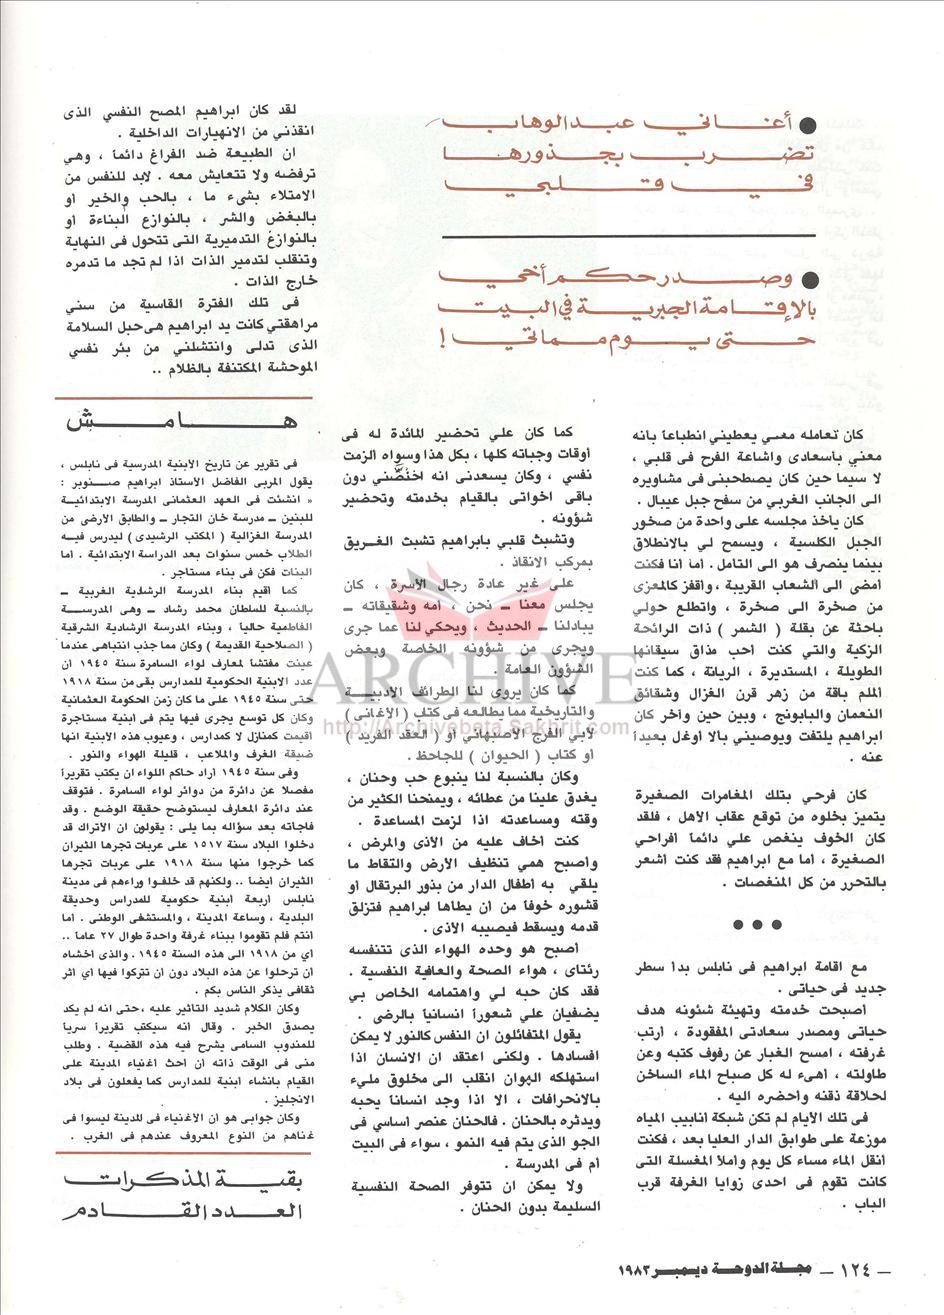 ● أغاني عبد الوهاب
تضرب بجذورها
في قلبي
● وصدر حكم أخي
بالإقامة الجبرية في البيت
حتى يوم مماتي !
كان تعامله معي يعطيني انطباعاً بانه
معني باسعادى واشاعة الفرح فى قلبي ،
لا سيما حين كان يصطحبنى فى مشاويره
الى الجانب الغربي من سفح جبل عيبال .
كان ياخذ مجلسه على واحدة من صخور
الجبل الكلسية ، ويسمح لي بالانطلاق
بينما ينصرف هو الى التامل . أما أنا فكنت
أمضى الى الشعاب القريبة ، وأقفز كالمعزى
من صخرة الى صخرة ، واتطلع حولي
باحثة عن بقلة ( الشمر ) ذات الرائحة
الزكية والتي كنت أحب مذاق سيقانها
الطويلة ، المستديرة ، الريانة ، كما كنت
الملم باقة من زهر قرن الغزال وشقائق
النعمان والبابونج ، وبين حين وآخر كان
ابراهيم يلتفت ويوصيني بالا أوغل بعيداً
عنه .
كان فرحي بتلك المغامرات الصغيرة
يتميز بخلوه من توقع عقاب الأهل ، فلقد
كان الخوف ينغص علي دائماً أفراحي
الصغيرة ، أما مع ابراهيم فقد كنت أشعر
بالتحرر من كل المنغصات .
● ● ●
مع اقامة ابراهيم فى نابلس بدأ سطر
جديد فى حياتى .
أصبحت خدمته وتهيئة شئونه هدف
حياتى ومصدر سعادتى المفقودة ، أرتب
غرفته ، امسح الغبار عن رفوف كتبه وعن
طاولته ، أهىء له كل صباح الماء الساخن
لحلاقة ذقنه وأحضره اليه .
فى تلك الأيام لم تكن شبكة أنابيب المياه
موزعة على طوابق الدار العليا بعد ، فكنت
أنقل الماء مساء كل يوم وأملأ المغسلة التى
كانت تقوم فى احدى زوايا الغرفة قرب
الباب .
كما كان علي تحضير المائدة له فى
أوقات وجباته كلها ، بكل هذا وسواه ألزمت
نفسي ، وكان يسعدنى انه اختصّني دون
باقى اخواتى بالقيام بخدمته وتحضير
شؤونه .
وتشبث قلبي بابراهيم تشبث الغريق
بمركب الانقاذ .
على غير عادة رجال الأسرة ، كان
يجلس معنا ــ نحن ، أمه وشقيقاته ــ
يبادلنا ــ الحديث ، ويحكي لنا عما جرى
ويجرى من شؤونه الخاصة وبعض
الشؤون العامة .
كما كان يروى لنا الطرائف الأدبية
والتاريخية مما يطالعه فى كتاب ( الأغانى )
لأبي الفرج الأصبهاني أو ( العقد الفريد )
أو كتاب ( الحيوان ) للجاحظ .
وكان بالنسبة لنا ينبوع حب وحنان ،
يغدق علينا من عطائه ، ويمنحنا الكثير من
وقته ومساعدته اذا لزمت المساعدة .
كنت أخاف عليه من الأذى والمرض ،
وأصبح همي تنظيف الأرض والتقاط ما
يلقي به أطفال الدار من بذور البرتقال أو
قشوره خوفاً من أن يطأها ابراهيم فتزلق
قدمه ويسقط فيصيبه الأذى .
أصبح هو وحده الهواء الذى تتنفسه
رئتاى ، هواء الصحة والعافية النفسية .
فقد كان حبه لي واهتمامه الخاص بي
يضفيان علي شعوراً انسانياً بالرضى .
يقول المتفائلون ان النفس كالنور لا يمكن
افسادها . ولكنى اعتقد ان الانسان اذا
استهلكه الهوان انقلب الى مخلوق مليء
بالانحرافات ، الا اذا وجد انساناً يحبه
ويدثره بالحنان . فالحنان عنصر أساسي فى
الجو الذى يتم فيه النمو ، سواء فى البيت
أم فى المدرسة .
ولا يمكن ان تتوفر الصحة النفسية
السليمة بدون الحنان .
لقد كان ابراهيم المصح النفسي الذى
انقذني من الانهيارات الداخلية .
ان الطبيعة ضد الفراغ دائماً ، وهي
ترفضه ولا تتعايش معه . لابد للنفس من
الامتلاء بشىء ما ، بالحب والخير أو
بالبغض والشر ، بالنوازع البناءة او
بالنوازع التدميرية التى تتحول فى النهاية
وتنقلب لتدمير الذات اذا لم تجد ما تدمره
خارج الذات .
فى تلك الفترة القاسية من سني
مراهقتي كانت يد ابراهيم هى حبل السلامة
الذى تدلى وانتشلني من بئر نفسي
الموحشة المكتنفة بالظلام ..
هامش
فى تقرير عن تاريخ الأبنية المدرسية فى نابلس ،
يقول المربى الفاضل الأستاذ ابراهيم صنوبر :
« انشئت فى العهد العثمانى المدرسة الابتدائية
للبنين ــ مدرسة خان التجار ــ والطابق الأرضى من
المدرسة الغزالية ( المكتب الرشيدى ) ليدرس فيه
الطلاب خمس سنوات بعد الدراسة الابتدائية . أما
البنات فكن فى بناء مستأجر .
كما أقيم بناء المدرسة الرشادية الغربية ــ
بالنسبة للسلطان محمد رشاد ــ وهى المدرسة
الفاطمية حالياً ، وبناء المدرسة الرشادية الشرقية
( الصلاحية القديمة ) وكان مما جذب انتباهى عندما
عينت مفتشا لمعارف لواء السامرة سنة ١٩٤٥ ان
عدد الأبنية الحكومية للمدارس بقى من سنة ١٩١٨
حتى سنة ١٩٤٥ على ما كان زمن الحكومة العثمانية
وكان كل توسع يجرى فيها يتم فى ابنية مستاجرة
أقيمت كمنازل لا كمدارس ، وعيوب هذه الأبنية انها
ضيقة الغرف والملاعب ، قليلة الهواء والنور .
وفى سنة ١٩٤٥ أراد حاكم اللواء ان يكتب تقريراً
مفصلا عن دائرة من دوائر لواء السامرة . فتوقف
عند دائرة المعارف ليستوضح حقيقة الوضع . وقد
فاجأته بعد سؤاله بما يلى : يقولون ان الأتراك قد
دخلوا البلاد سنة ١٥١٧ على عربات تجرها الثيران
كما خرجوا منها سنة ١٩١٨ على عربات تجرها
الثيران أيضاً .. ولكنهم قد خلفوا وراءهم فى مدينة
نابلس أربعة أبنية حكومية للمدارس وحديقة
البلدية ، وساعة المدينة ، والمستشفى الوطنى . أما
انتم فلم تقوموا ببناء غرفة واحدة طوال ٢٧ عاماً ..
أي من ١٩١٨ الى هذه السنة ١٩٤٥ . والذى أخشاه
ان ترحلوا عن هذه البلاد دون ان تتركوا فيها أي أثر
ثقافى يذكر الناس بكم .
وكان الكلام شديد التأثير عليه ، حتى انه لم يكد
يصدق الخبر . وقال انه سيكتب تقريراً سرياً
للمندوب السامى يشرح فيه هذه القضية . وطلب
منى فى الوقت ذاته ان أحث أغنياء المدينة على
القيام بانشاء أبنية للمدارس كما يفعلون فى بلاد
الانجليز .
وكان جوابى هو أن الأغنياء فى المدينة ليسوا فى
غناهم من النوع المعروف عندهم فى الغرب .
بقية المذكرات
العدد القادم
ــ ١٢٤ ــ مجلة الدوحة ديسمبر ١٩٨٣
ARCHIVE
http://Archivebeta.Sakhrit.com